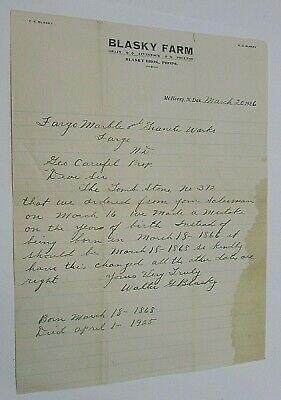 BLASKY FARM
BLASKY BROS., PROPS.
McHenry, N. Dak March 20 1926
Fargo Marble and Granite Works
Fargo
N.D
Geo Prop
Dear Sir
The Tomb Stone No 372
that we ordered from your salesman
on March 16 we made a mistake
on the years of birth Instead of
being born in March 18 - 1866 it
should be March 18 - 1868 so kindly
have this changed all the other dates are
right Yours Very Truly
Walter Blasky
Born March 18 - 1868
Died April 1 - 1925